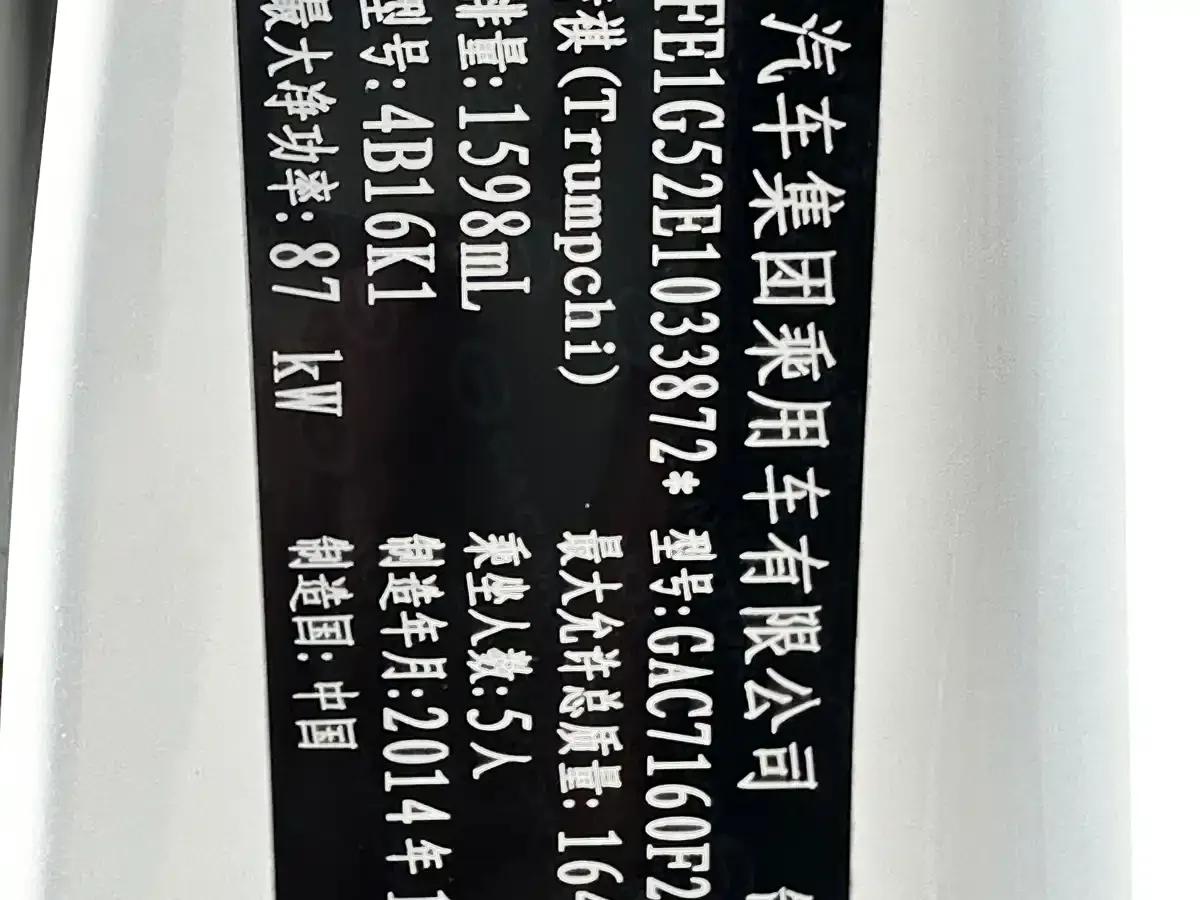 汽车集团乘用车有限公司
FE1G52E1033872* 型号:GAC7160F2
祺(Trumpchi) 最大允许总质量:164
排量:1598mL 乘坐人数:5人
型号:4B16K1 制造年月:2014年1
最大净功率:87 kW 制造国:中国